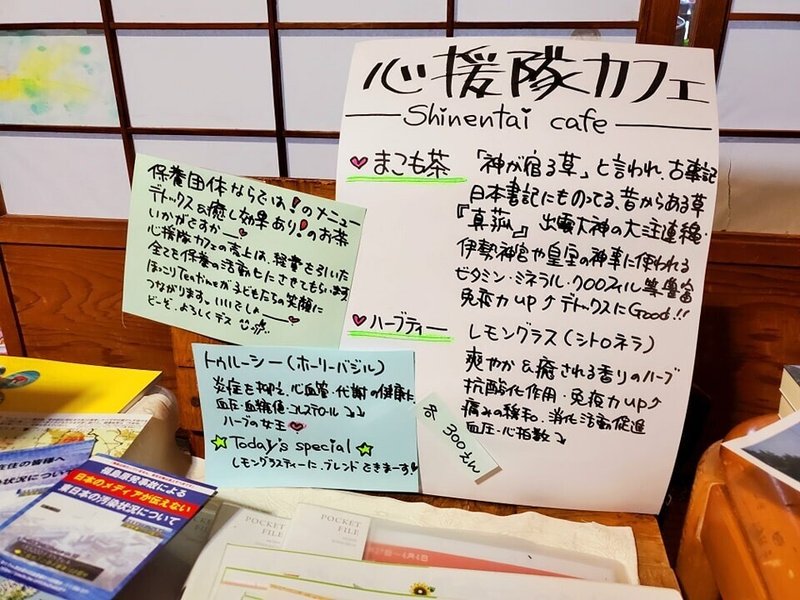 心援隊カフェ
Shinentai cafe
♥まこも茶
「神が宿る草」と言われ、古事記
日本書記にものってる、昔からある草
『真菰』 出雲大神の大注連縄・
伊勢神宮や皇室の神事に使われる
ビタミン・ミネラル・クロロフィル等豊富
免疫力up↑デトックスにGood!!
♥ハーブティー
レモングラス(シトロネラ)
爽やか&癒される香りのハーブ
抗酸化作用・免疫力up↑
痛みの緩和、消化活動促進
血圧・心指数↓
保養団体ならでは!のメニュー
デトックス&癒し効果あり!のお茶
いかがですか
心援隊カフェの売上は、経費を引いた
全てを保養の活動
ほっこりTea timeが子どもたちの笑顔に
つながります。
どーぞ、よろしくデス
トゥルーシー(ホーリーバジル)
炎症を抑え、心血管・代謝の健康に
血圧・血糖値・コレステロール↓↓
ハーブの女王♥
★Today's special★
レモングラスティーに、ブレンドできまーす
300えん
在住の皆様へ
状況について
福島原発事故による
日本のメディアが伝えない
東日本の汚染状況について
POCKET
FILE
POCKET
FILE